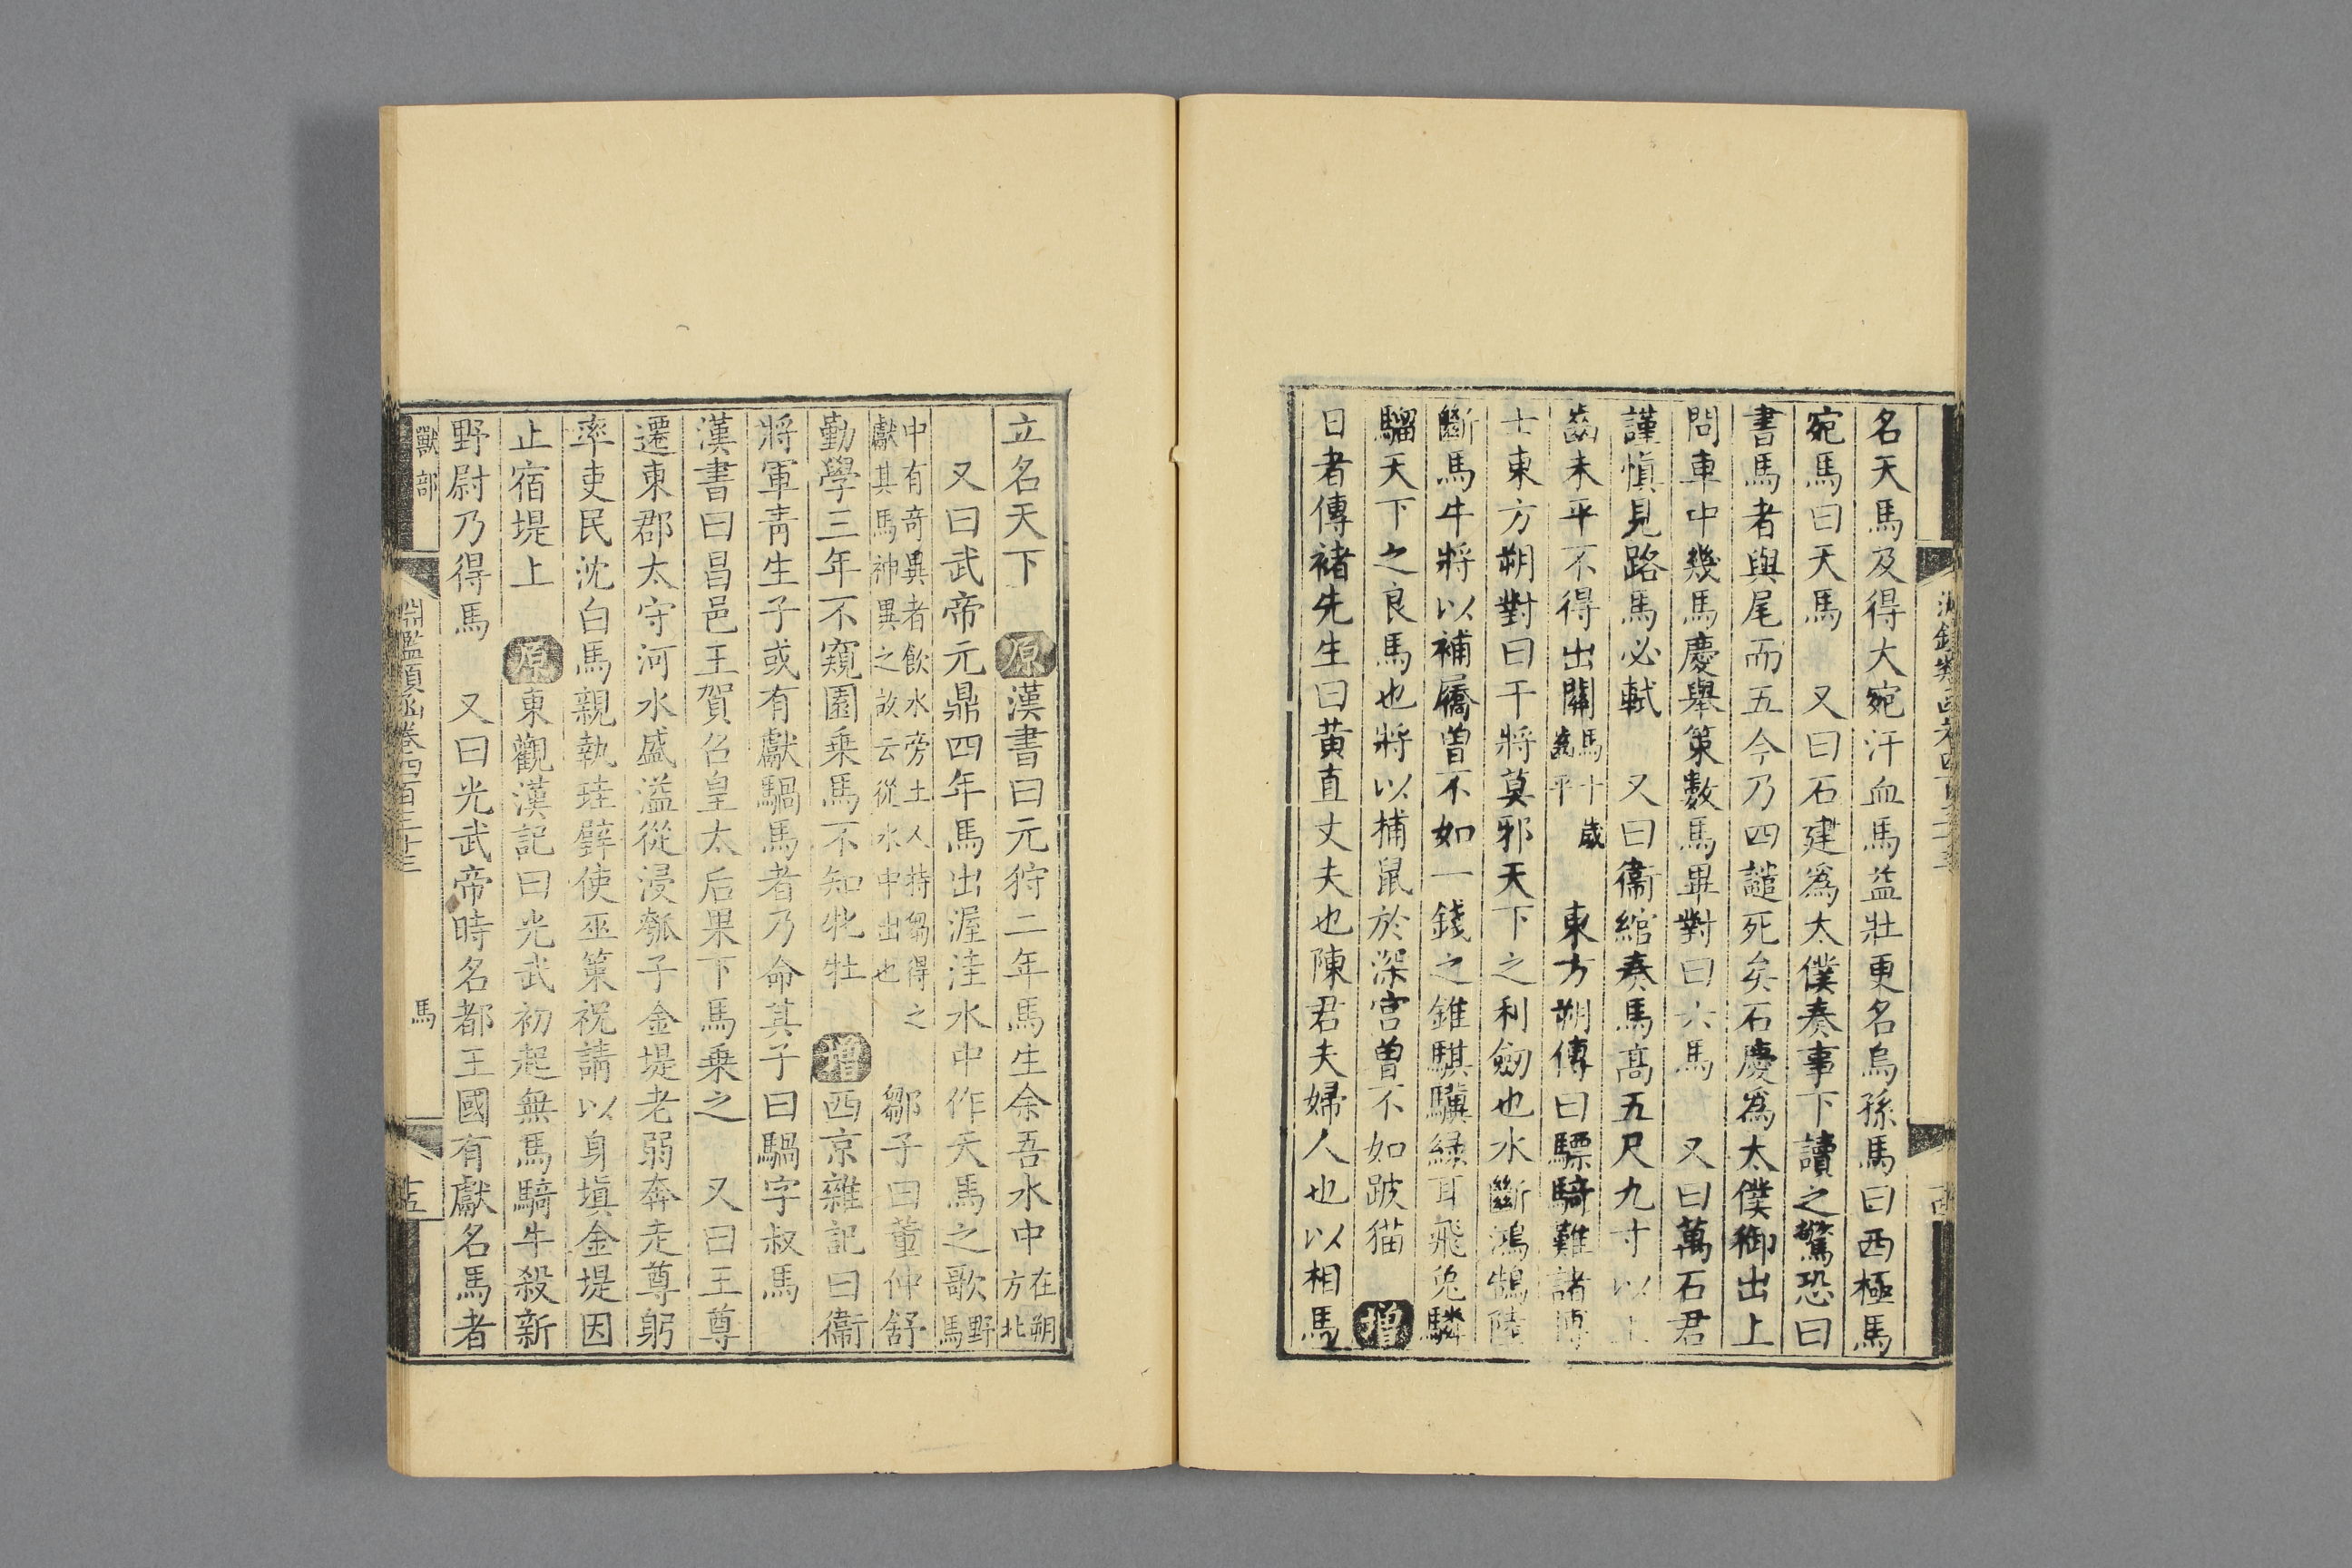 名天馬及得大宛汗血馬益壯更名烏孫馬曰西極馬
宛馬曰天馬 又曰石建爲太僕奏事下讀之驚恐曰
書馬者與尾而五今乃四譴死矣石慶爲太僕御出上
問車中幾馬慶舉策數馬畢對曰六馬 又曰萬石君
謹愼見路馬必軾 又曰衞綰奏馬髙五尺九寸以上
齒未平不得出關馬十歲齒平 東方朔傳曰驃騎難諸博
士東方朔對曰干將莫邪天下之利劒也水斷鴻鵠陸
斷馬牛將以補屩曾不如一錢之錐騏驥緑耳飛兎驎
騮天下之良馬也將以捕鼠於深宫曾不如跛猫 增
日者傳褚先生曰黄直丈夫也陳君夫婦人也以相馬
立名天下 原漢書曰元狩二年馬生余吾水中在朔方北
又曰武帝元鼎四年馬出渥洼水中作天馬之歌野馬
中有奇異者飮水旁土人持芻得之獻其馬神異之故云從水中出也 鄒子曰董仲舒
勤學三年不窺園乗馬不知牝牡 增西京雜記曰衞
將軍靑生子或有獻騧馬者乃命其子曰騧字叔馬
漢書曰昌邑王賀召皇太后果下馬乗之 又曰王尊
遷東郡太守河水盛溢從浸瓠子金堤老弱奔走尊躬
率吏民沈白馬親執珪璧使巫策祝請以身塡金堤因
止宿堤上 原東觀漢記曰光武初起無馬騎牛殺新
野尉乃得馬 又曰光武帝時名都王國有獻名馬者
獸部 淵鑑類函卷四百三十三 馬 十五